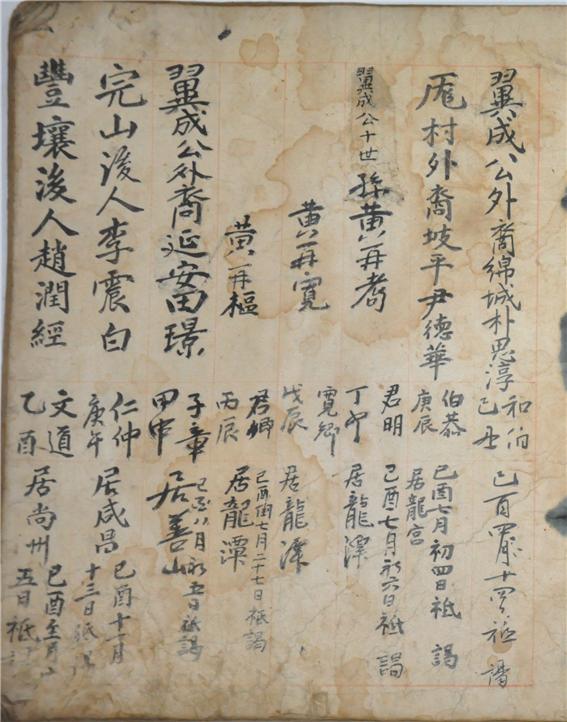 翼成公外裔綿城朴思淳 和伯 己丑 己酉四月十四日祗謁
厖村外裔坡平尹德華 伯恭 庚辰 居龍宮 己酉七月初四日祗謁
翼成公十世孫黃再耉 君明 丁 居龍潭 己酉七月初六日祗謁
黃再寬 寬卿 戊辰 居龍潭
黃再樞 君卿 丙辰 居龍潭 己酉閏七月二十七日祗謁
翼成公外裔延安田璟 子章 甲申 居善山 己酉八月初五日祗謁
完山後人李震白 仁仲 庚午 居咸昌 己酉十一月十三日祗
豐壤後人趙潤經 文道 乙酉 居尚州 己酉至月 五日祗